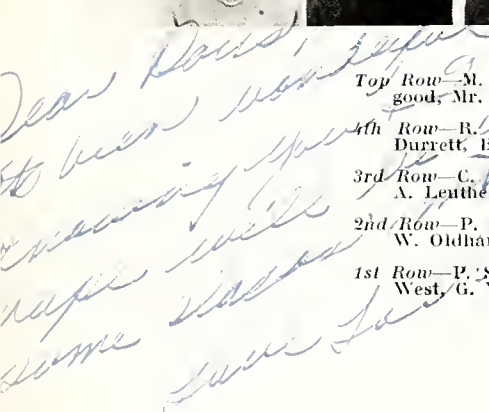 Dear Doris,
It's been wonderful
knowing you &
hope we'll be in
some classes
Love
Top Row—M.
good, Mr.
4th Row—R.
Durrett, B
3rd Row—C.
A. Leuthe
2nd Row—P.
W. Oldha
1st Row—P. S
West, G.